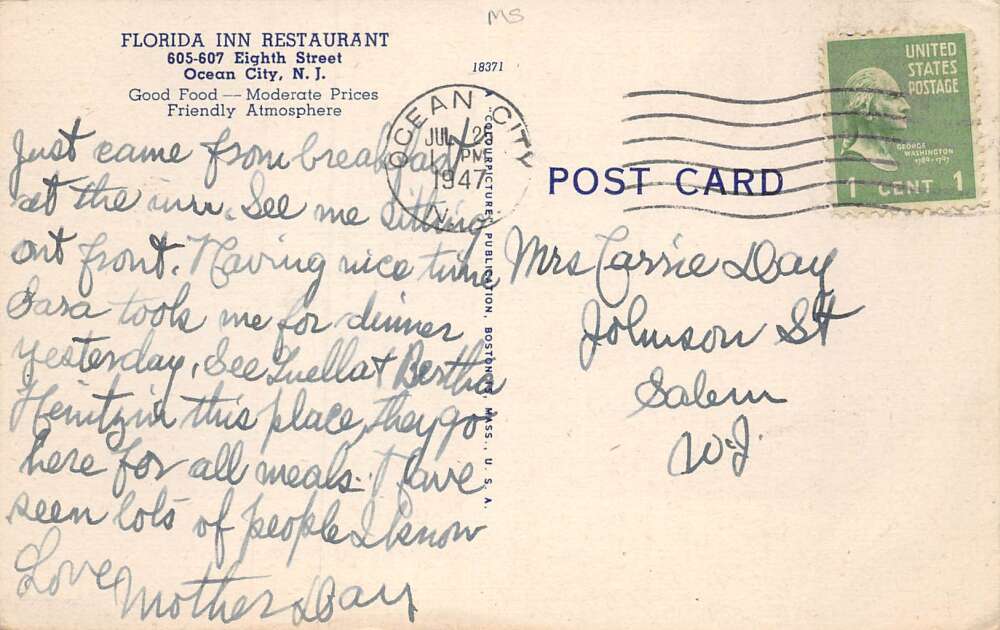 MS
FLORIDA INN RESTAURANT
605-607 Eighth Street
Ocean City, N. J.
Good Food — Moderate Prices
Friendly Atmosphere
Just came from breakfast
at the inn. See me sitting
out front. Having nice time
Sara took me for dinner
yesterday. See Luella & Bertha
in this place, they go
here for all meals. I have
seen lots of people I know
Love
Mother Day
18371
A "COLOURPICTURE" PUBLICATION, BOSTON 15, MASS., U. S. A.
OCEAN CITY
JUL 2
PM
1947
N.J.
UNITED
STATES
POSTAGE
GEORGE
WASHINGTON
1789-1797
1 CENT 1
POST CARD
Mrs Carrie Day
Johnson St
Salem
N.J.